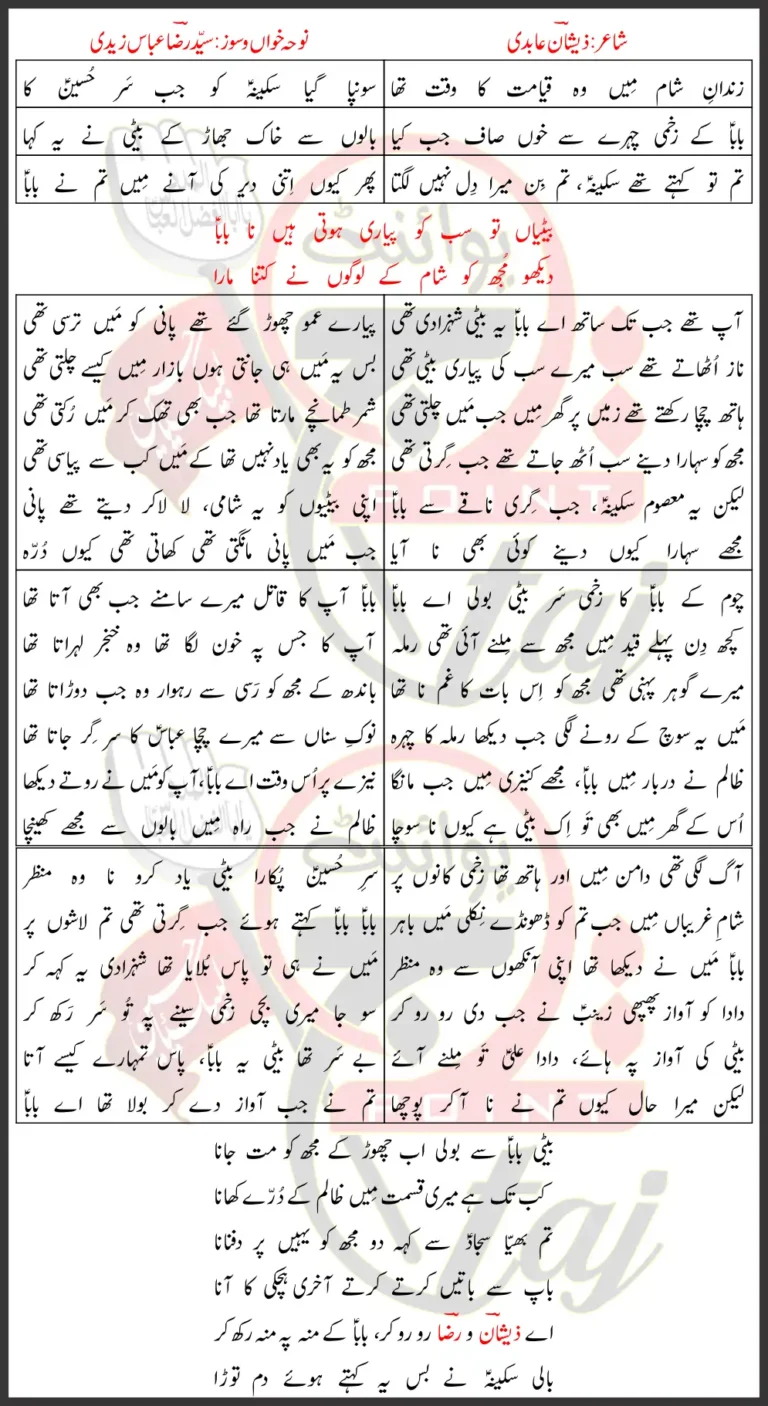 شاعر: ذیشانؔ عابدی
نوحہ خواں و سوز: سیّد رضاؔ عباس زیدی
زندانِ شام مِیں وہ قیامت کا وقت تھا
سونپا گیا سکینہؑ کو جب سَر حُسینؑ کا
باباؑ کے زخمی چہرے سے خوں صاف جب کیا
بالوں سے خاک جھاڑ کے بیٹی نے یہ کہا
تم تو کہتے تھے سکینہؑ، تم بِن میرا دِل نہیں لگتا
پھر کیوں اِتنی دیر کی آنے مِیں تم نے باباؑ
بیٹیاں تو سب کو پیاری ہوتی ہیں نا باباؑ
دیکھو مُجھ کو شام کے لوگوں نے کتنا مارا
آپ تھے جب تک ساتھ اے باباؑ یہ بیٹی شہزادی تھی
ناز اُٹھاتے تھے سب میرے سب کی پیاری بیٹی تھی
ہاتھ چچا رکھتے تھے زمیں پر گھر مِیں جب مَیں چلتی تھی
مجھ کو سہارا دینے سب اُٹھ جاتے تھے جب گِرتی تھی
لیکن یہ معصوم سکینہؑ، جب گِری ناقے سے باباؑ
مجھے سہارا کیوں دینے کوئی بھی نا آیا
پیارے عمو چھوڑ گئے تھے پانی کو مَیں ترسی تھی
بس یہ مَیں ہی جانتی ہوں بازار مِیں کیسے چلتی تھی
شمر طمانچے مارتا تھا جب بھی تھک کر مَیں رُکتی تھی
مجھ کو یہ بھی یاد نہیں تھا کے مَیں کب سے پیاسی تھی
اپنی بیٹیوں کو یہ شامی، لا لاکر دیتے تھے پانی
جب مَیں پانی مانگتی تھی کھاتی تھی کیوں دُرّہ
چوم کے باباؑ کا زخمی سَر بیٹی بولی اے باباؑ
کچھ دِن پہلے قید مِیں مجھ سے مِلنے آئی تھی رملہ
میرے گوہر پہنی تھی مجھ کو اِس بات کا غم نا تھا
مَیں یہ سوچ کے رونے لگی جب دیکھا رملہ کا چہرہ
ظالم نے دربار مِیں باباؑ، مجھے کنیزی مِیں جب مانگا
اُس کے گھر مِیں بھی تَو اِک بیٹی ہے کیوں نا سوچا
باباؑ آپ کا قاتل میرے سامنے جب بھی آتا تھا
آپ کا جس پہ خون لگا تھا وہ خنجر لہراتا تھا
باندھ کے مجھ کو رَسی سے رہوار وہ جب دوڑاتا تھا
نوکِ سناں سے میرے چچا عباسؑ کا سر گِر جاتا تھا
نیزے پر اُس وقت اے باباؑ، آپ کو مَیں نے روتے دیکھا
ظالم نے جب راہ مِیں بالوں سے مجھے کھینچا
آگ لگی تھی دامن مِیں اور ہاتھ تھا زخمی کانوں پر
شامِ غریباں مِیں جب تم کو ڈھونڈے نِکلی مَیں باہر
باباؑ مَیں نے دیکھا تھا اپنی آنکھوں سے وہ منظر
دادا کو آواز پھپھی زینبؑ نے جب دی رو رو کر
بیٹی کی آواز پہ ہائے، دادا علیؑ تَو مِلنے آئے
لیکن میرا حال کیوں تم نے نا آکر پوچھا
سرِ حُسینؑ پُکارا بیٹی یاد کرو نا وہ منظر
باباؑ باباؑ کہتے ہوئے جب گِرتی تھی تم لاشوں پر
مَیں نے ہی تو پاس بُلایا تھا شہزادی یہ کہہ کر
سو جا میری بچی زخمی سینے پہ تُو سَر رَکھ کر
بے سَر تھا بیٹی یہ باباؑ، پاس تمہارے کیسے آتا
تم نے جب آواز دے کر بولا تھا اے باباؑ
بیٹی باباؑ سے بولی اب چھوڑ کے مجھ کو مت جانا
کب تک ہے میری قسمت مِیں ظالم کے دُرّے کھانا
تم بھیّا سجادؑ سے کہہ دو مجھ کو یہیں پر دفنانا
باپ سے باتیں کرتے کرتے آخری ہچکی کا آنا
اے ذیشانؔ و رضاؔ رو رو کر، باباؑ کے منہ پہ منہ رکھ کر
بالی سکینہؑ نے بس یہ کہتے ہوئے دم توڑا
پوائنٹ
POINT
taj
پوائنٹ
POINT
taj